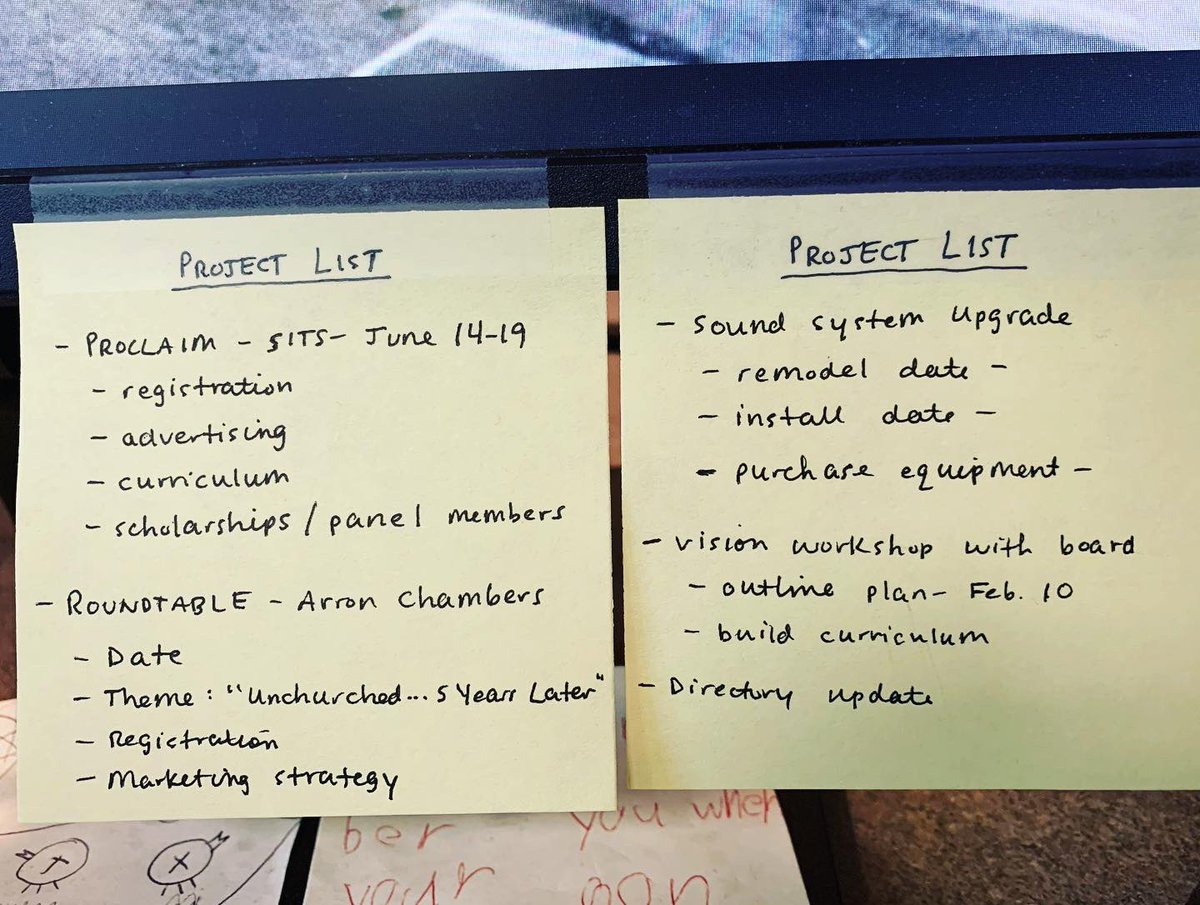 PROJECT LIST
- PROCLAIM - SITS- June 14-19
- registration
- advertising
- curriculum
- scholarships / panel members
- ROUNDTABLE - Arron Chambers
- Date
- Theme: "Unchurched... 5 Years Later"
- Registration
- Marketing strategy
PROJECT LIST
- Sound system upgrade
- remodel date -
- install date -
- purchase equipment -
- vision workshop with board
- outline plan- Feb. 10
- build curriculum
- Directory update
ber you when
your